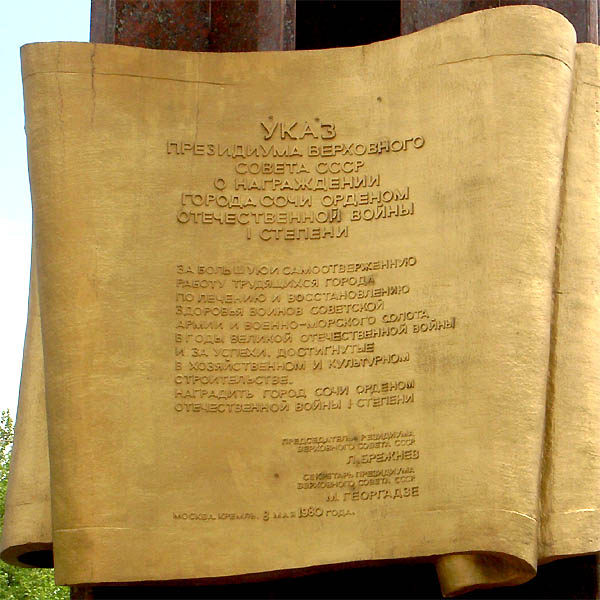 УКАЗ
ПРЕЗИДИУМА ВЕРХОВНОГО
СОВЕТА СССР
О НАГРАЖДЕНИИ
ГОРОДА СОЧИ ОРДЕНОМ
ОТЕЧЕСТВЕННОЙ ВОЙНЫ
I СТЕПЕНИ
ЗА БОЛЬШУЮ И САМООТВЕРЖЕННУЮ
РАБОТУ ТРУДЯЩИХСЯ ГОРОДА
ПО ЛЕЧЕНИЮ И ВОССТАНОВЛЕНИЮ
ЗДОРОВЬЯ ВОИНОВ СОВЕТСКОЙ
АРМИИ И ВОЕННО-МОРСКОГО ФЛОТА
В ГОДЫ ВЕЛИКОЙ ОТЕЧЕСТВЕННОЙ ВОЙНЫ
И ЗА УСПЕХИ, ДОСТИГНУТЫЕ
В ХОЗЯЙСТВЕННОМ И КУЛЬТУРНОМ
СТРОИТЕЛЬСТВЕ,
НАГРАДИТЬ ГОРОД СОЧИ ОРДЕНОМ
ОТЕЧЕСТВЕННОЙ ВОЙНЫ I СТЕПЕНИ
ПРЕДСЕДАТЕЛЬ РЕЗИДИУМА
ВЕРХОВНОГО СОВЕТА СССР
Л. БРЕЖНЕВ
СЕКРЕТАРЬ ПРЕЗИДИУМА
ВЕРХОВНОГО СОВЕТА СССР
М. ГЕОРГАДЗЕ
МОСКВА. КРЕМЛЬ. 8 МАЯ 1980 ГОДА.